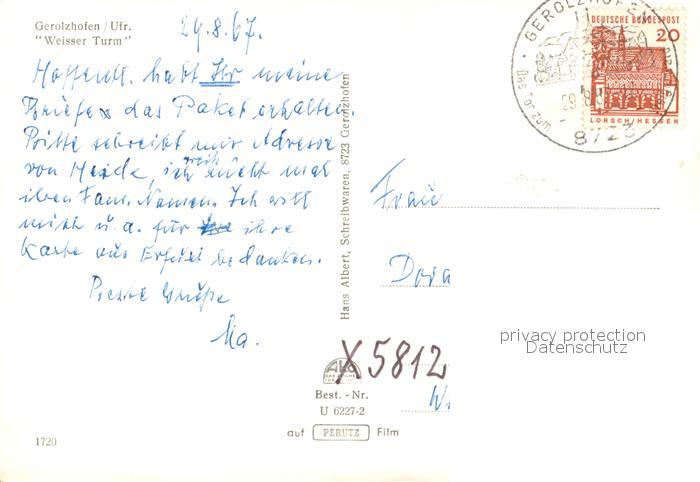 Gerolzhofen / Ufr.
"Weisser Turm"
29.8.67.
Hoffentl. habt Ihr meine
Briefe u das Paket erhalten.
Bitte schreibt mir Adresse
von Heide, ich weiß nicht mal
ihren Fam. Namen. Ich will
mich u. a. für ihre
Karte aus Erfurt bedanken.
Beste Grüße
Ma.
Hans Albert, Schreibwaren, 8723 Gerolzhofen
GEROLZHOFEN
Das Tor zum
29.8.
8723
DEUTSCHE BUNDESPOST
20
LORSCH/HESSEN
Frau
Dora
privacy protection
Datenschutz
X5812
W
Best. - Nr.
U 6227-2
auf PERUTZ Film
1720